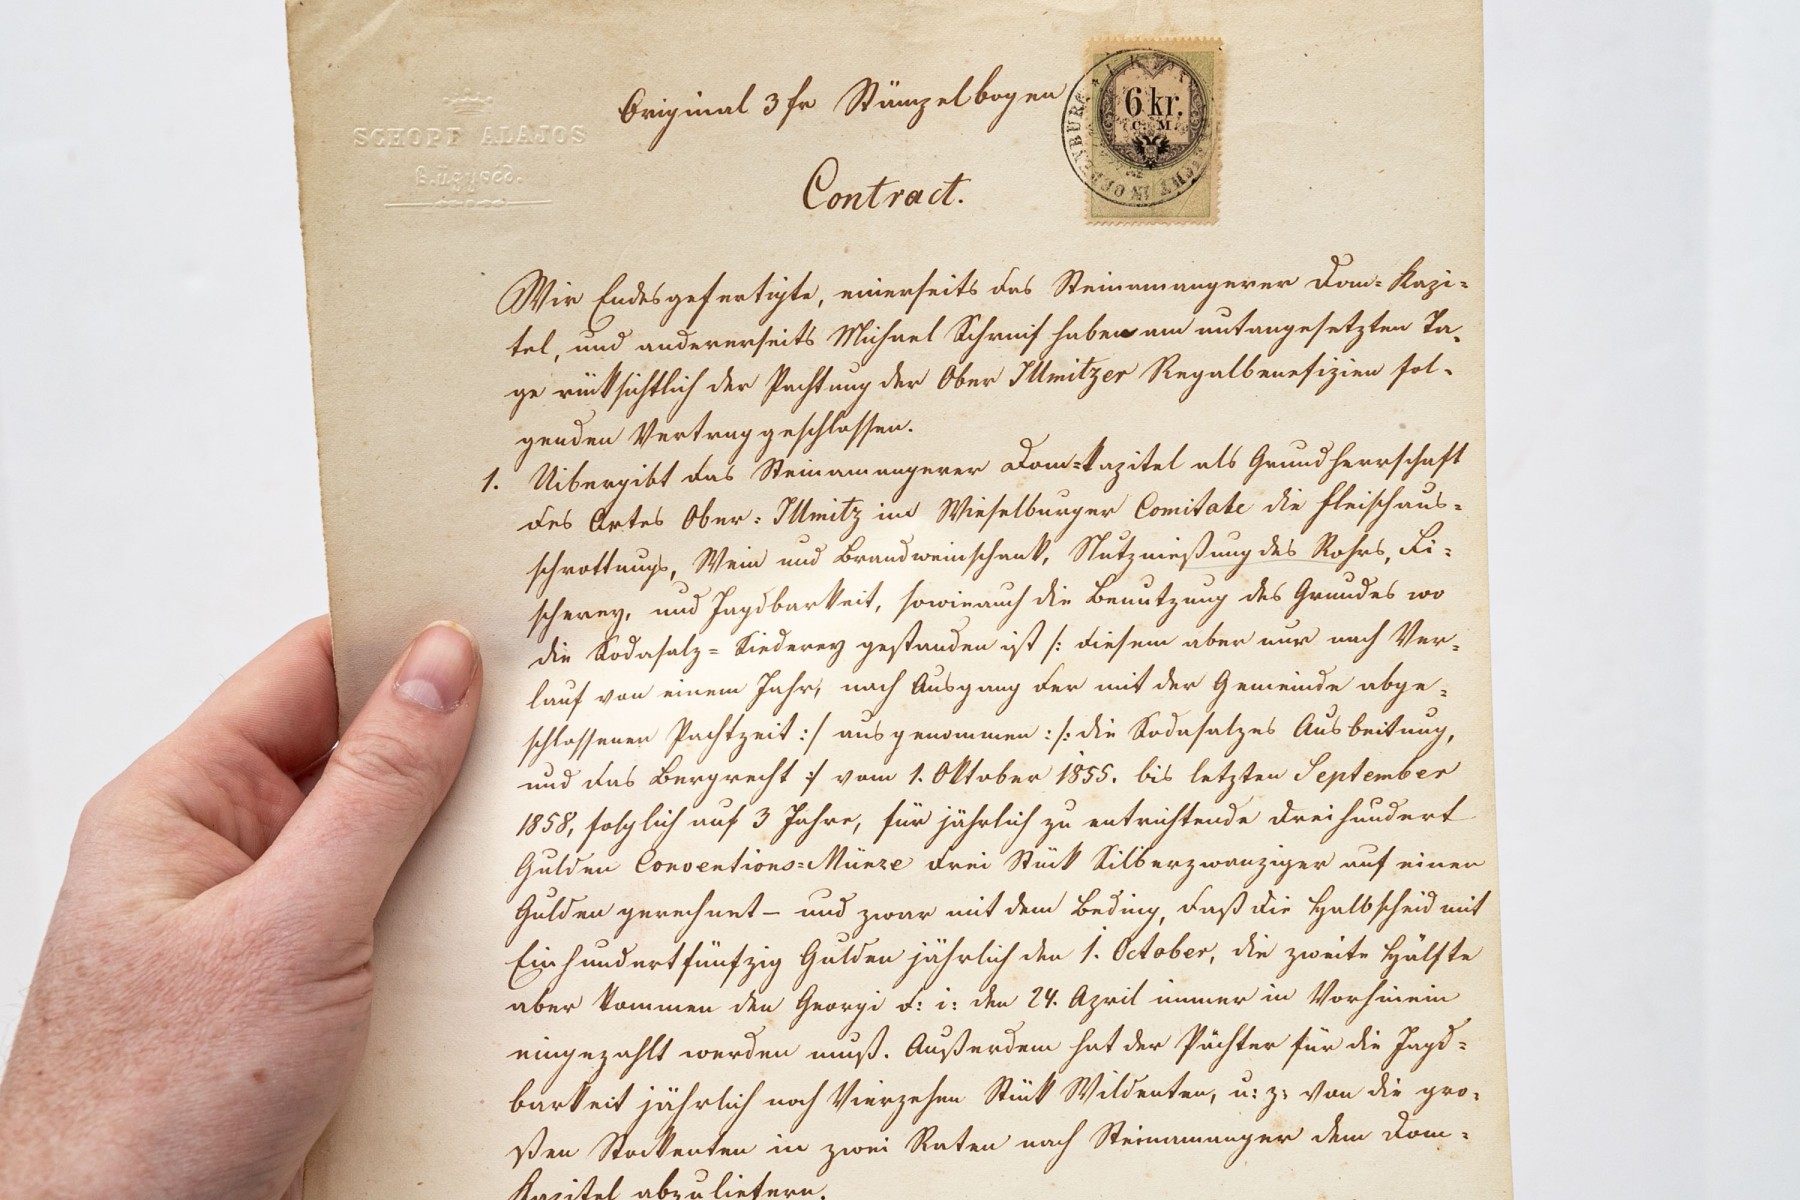 SCHOPF ALAJOS
Original 3 fr Stämpelbogen
6 kr.
C. M.
Contract.
Wir Endesgefertigte, einerseits das Steinamangerer Dom= Kapi=
tel, und andererseits Michael Schruif haben am untangesetzten Ta=
ge rüksichtlich der Pachtung der Ober Illmitzer Regalbenefizien fol=
genden Vertrag geschlossen.
1. Uibergibt das Steinamangerer Dom=Kapitel als Grundherrschaft
des Ortes Ober= Illmitz im Wieselburger Comitate die Fleischaus=
schrottungs, Wein und Brandweinschank, Nutznießung des Rohrs, Fi=
scherey, und Jagdbarkeit, sowie auch die Benutzung des Grundes wo
die Sodasalz= Siederey gestanden ist /: diesem aber nur nach Ver=
lauf von einem Jahr, nach Ausgang der mit der Gemeinde abge=
schlossenen Pachtzeit :/ ausgenommen :/: die Sodasalzes Ausbeitung,
und das Bergrecht :/ vom 1. Oktober 1855. bis letzten September
1858, folglich auf 3 Jahre, für jährlich zu entrichtende Dreihundert
Gulden Conventions=Münze drei Stück Silberzwanziger auf einen
Gulden gerechnet – und zwar mit dem Beding, daß die Halbscheid mit
Einhundertfünfzig Gulden jährlich den 1. October, die zweite Hälfte
aber kommen den Georgi d: i: den 24. April immer in Vorhinein
eingezahlt werden muß. Außerdem hat der Pächter für die Jagd=
barkeit jährlich noch Vierzehen Stük Wildenten, u: z: von die gro=
ßen Stockenten in zwei Raten nach Steinamanger dem Dom=
Kapitel abzuliefern.